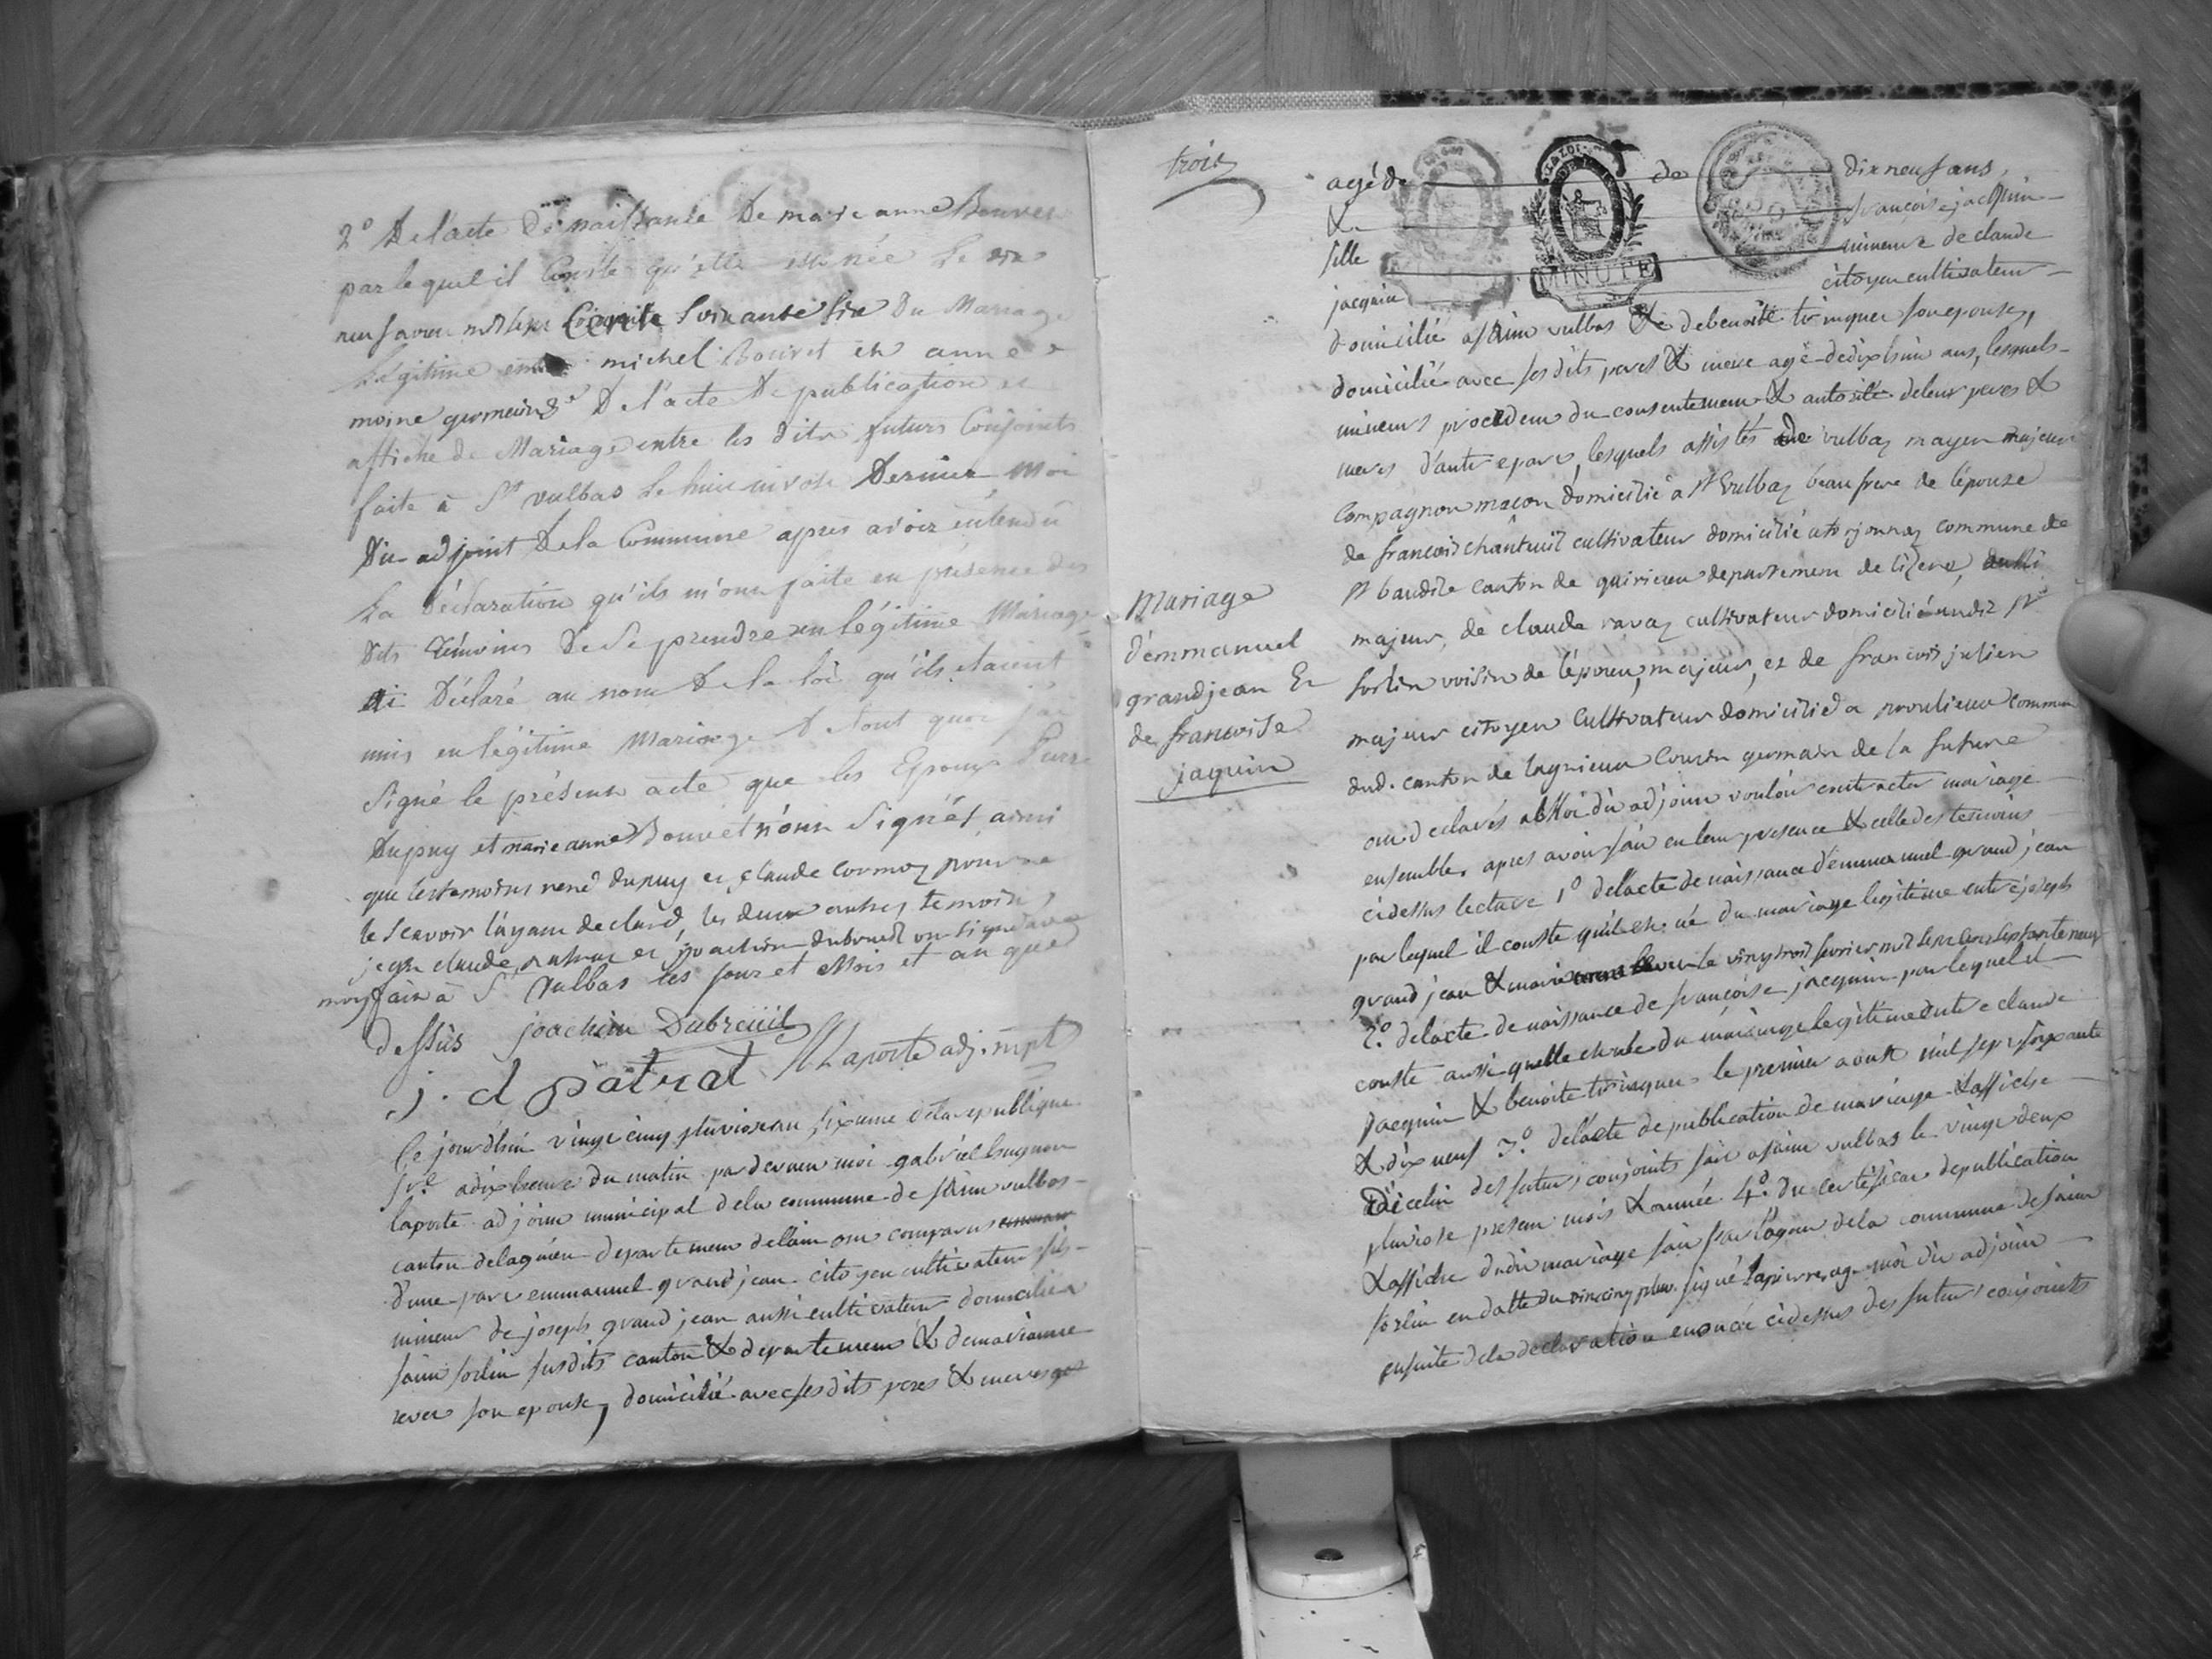 2º De l'acte De naissance De marie anne Bouvet
par lequel il Conste qu'elle est née le dix
neuf avril mil sept Cent Soixante six Du Mariage
Légitime entre michel Bouvet et anne
moine germain 3º De l'acte De publication et
affiche de Mariage entre les dits futurs Conjoints
faite à St vulbas le huit nivose Dernier Moi
Dit adjoint De la Commune apres avoir entendu
La Déclaration qu'ils m'ont faite en présence des
Dits témoins De Se prendre en légitime Mariage
ai Déclaré au nom De la loi qu'ils étaient
unis en légitime Mariage De tout quoi j'ai
Signé le présent acte que les Epoux
Dupuy et marie anne Bouvet n'ont Signés ainsi
que les temoins rené dupuy et claude cormoz pour ne
le scavoir l'ayant declaré, les deux autres temoins
jean claude patrat et joachim dubreuil ont signé avec
moy fait à St Vulbas les jour et Mois et an que
dessus joachim Dubreüil
j. d patrat Laporte adj. mpl
Ce jourdhui vingt cinq pluviose an sixieme de la republique
fse a dix heures du matin par devant moi gabriel hugnon
laporte adjoint municipal de la commune de saint vulbas
canton de lagnieu departement de l'ain ont comparus
d'une part emmanuel grandjean citoyen cultivateur fils
mineur de joseph grand jean aussi cultivateur domicilié a
saint sorlin susdits canton & departement & de marianne
rever son epouse, domicilié avec ses dits peres & meres
trois
agé de de dix neuf ans,
& françoise jacquin
fille mineure de claude
jacquin citoyen cultivateur
domicilié a saint vulbas & de benoite trinquer son epouse,
domicilié avec ses dits peres & mere agé de dix huit ans, lesquels
mineurs procedent du consentement & autorité de leur peres &
meres d'autre part, lesquels assistés de vulbaz mayen majeur
compagnon macon domicilié a st vulbaz beau frere de l'épouze
de francois chantuil cultivateur domicilié a torjonnaz commune de
st baudile canton de quirieu departement de lizere,
majeur, de claude ravaz cultivateur domicilié audit st
sorlin voisin de l'époux, majeur, et de francois julien
majeur citoyen cultivateur domicilié a proulieu commune
dud. canton de lagnieu cousin germain de la future
Mariage
d'emmanuel
grandjean Et
de francoise
jaquin
ont declarés a Moi dit adjoint vouloir contracter mariage
ensemble, apres avoir fait en leur presence & celle des temoins
cidessus lecture 1º de l'acte de naissance d'emmanuel grand jean
par lequel il conste qu'il est né du mariage legitime entre joseph
grand jean & marie rever le vingt trois fevrier mil sept cent septante neuf
2º. de l'acte de naissance de françoise jacquin par lequel il
conste aussi quelle est née du mariage legitime entre claude
jacquin & benoite trinquer le premier aoust mil sept soixante
& dix neuf 3º de l'acte de publication de mariage & affiche
d'icelui des futurs conjoints fait a saint vulbas le vingt deux
pluviose present mois & année 4º. du certificat de publication
& affiche dudit mariage fait par l'agent de la commune de saint
sorlin en datte du vincinq pluv. signé lapierre, ag. moi dit adjoint
ensuite de la declaration enoncée cidessus des futurs conjoints
LA LOI
MINUTE